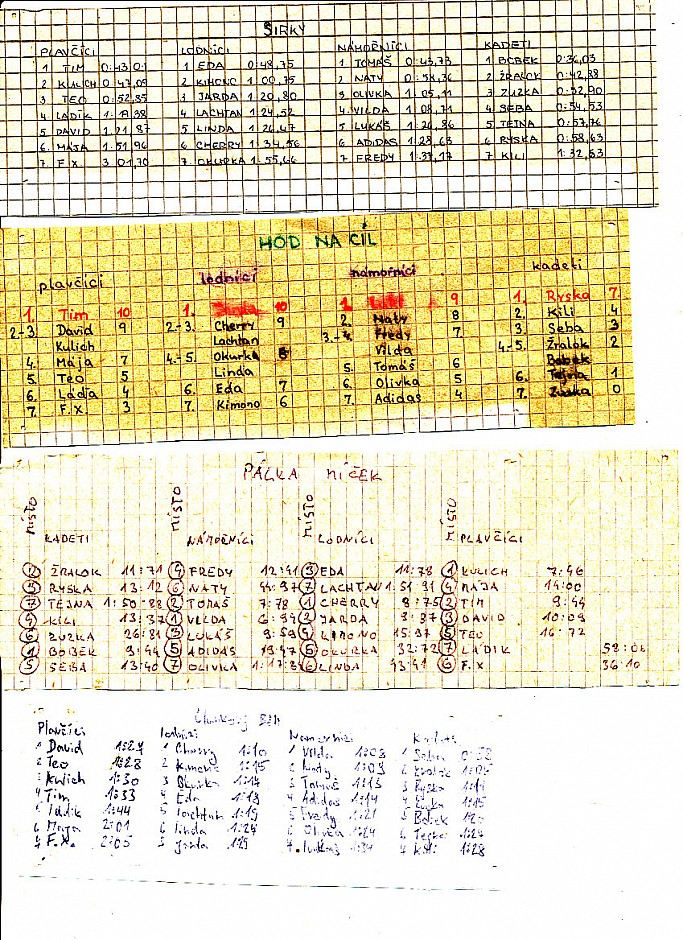 SIRKY
PLAVČÍCI LODNÍCI NÁMOŘNÍCI KADETI
1 TIM 0:43,01 1 EDA 0:48,75 1. TOMÁŠ 0:43,73 1 BOBEK 0:36,03
2 KULICH 0:47,09 2 KIMONO 1:00,75 2 NATY 0:58,36 2 ŽRALOK 0:42,88
3 TEO 0:52,85 3 JARDA 1:20,80 3 OLIVKA 1:05,11 3 ZUZKA 0:52,90
4 LADÍK 1:19,38 4 LACHTAN 1:24,52 4 VILDA 1:08,71 4 SEBA 0:54,53
5 DAVID 1:21,87 5 LINDA 1:26,47 5 LUKÁŠ 1:26,86 5 TEJNA 0:57,76
6 MÁJA 1:51,96 6 CHERRY 1:34,56 6 ADIDAS 1:28,63 6 RYSKA 0:58,63
7. F.X. 3:01,70 7 OKURKA 1:55,66 7 FREDY 1:37,17 7 KILI 1:32,53
HOD NA CÍL
plavčíci lodníci námořníci kadeti
1. Tim 10 1. 10 1. 9 1. Ryska 7
2.-3. David 9 2.-3. Cherry 9 2. Naty 8 2. Kili 4
Kulich Lachtan 3.-4. Fredy 7 3. Seba 3
4. Mája 7 4.-5. Okurka 8 Vilda 4.-5. Žralok 2
5. Teo 5 Linda 5. Tomáš 6 Bobek
6. Láďa 4 6. Eda 7 6. Olivka 5 6. Tejna 1
7. F.X. 3 7. Kimono 6 7. Adidas 4 7. Zuzka 0
PÁLKA MÍČEK
MÍSTO KADETI MÍSTO NÁMOŘNÍCI MÍSTO LODNÍCI MÍSTO PLAVČÍCI
2 ŽRALOK 11:71 4 FREDY 12:41 3 EDA 11:78 1 KULICH 7:46
3 RYSKA 13:12 6 NATY 44:97 7 LACHTAN 1:51 91 4 MÁJA 14:00
7 TEJNA 1:50:88 2 TOMÁŠ 7:78 1 CHERRY 8:75 2 TIM 9:44
4 KILI 13:37 1 VILDA 6:94 2 JARDA 9:87 3 DAVID 10:09
6 ZUZKA 26:81 3 LUKÁŠ 9:59 4 KIMONO 15:97 5 TEO 16:72
1 BOBEK 9:44 5 ADIDAS 19:47 5 OKURKA 32:72 7 LADIK 58:06
5 SEBA 13:40 7 OLIVKA 1:17:8 6 LINDA 43:41 6 F.X. 36:10
Člunkový běh
Plavčíci lodníci Námořníci Kadeti
1 David 1:27 1 Cherry 1:10 1 Vilda 1:03 1 Seba 0:58
2 Teo 1:28 2 Kimono 1:15 2 Naty 1:09 2 Žralok 1:05
3 Kulich 1:30 3 Okurka 1:17 3 Tomáš 1:13 3 Ryska 1:14
4 Tim 1:33 4 Eda 1:18 4 Adidas 1:14 4 Zuzka 1:15
5 Ladik 1:44 5 Lachtan 1:19 5 Fredy 1:21 5 Bobek
6 Maja 2:01 6 Linda 1:24 6 Olivka 1:24 6 Tejna 1:24
7 F.X. 2:05 Jarda 7. Lukáš 7 Kili 1:28